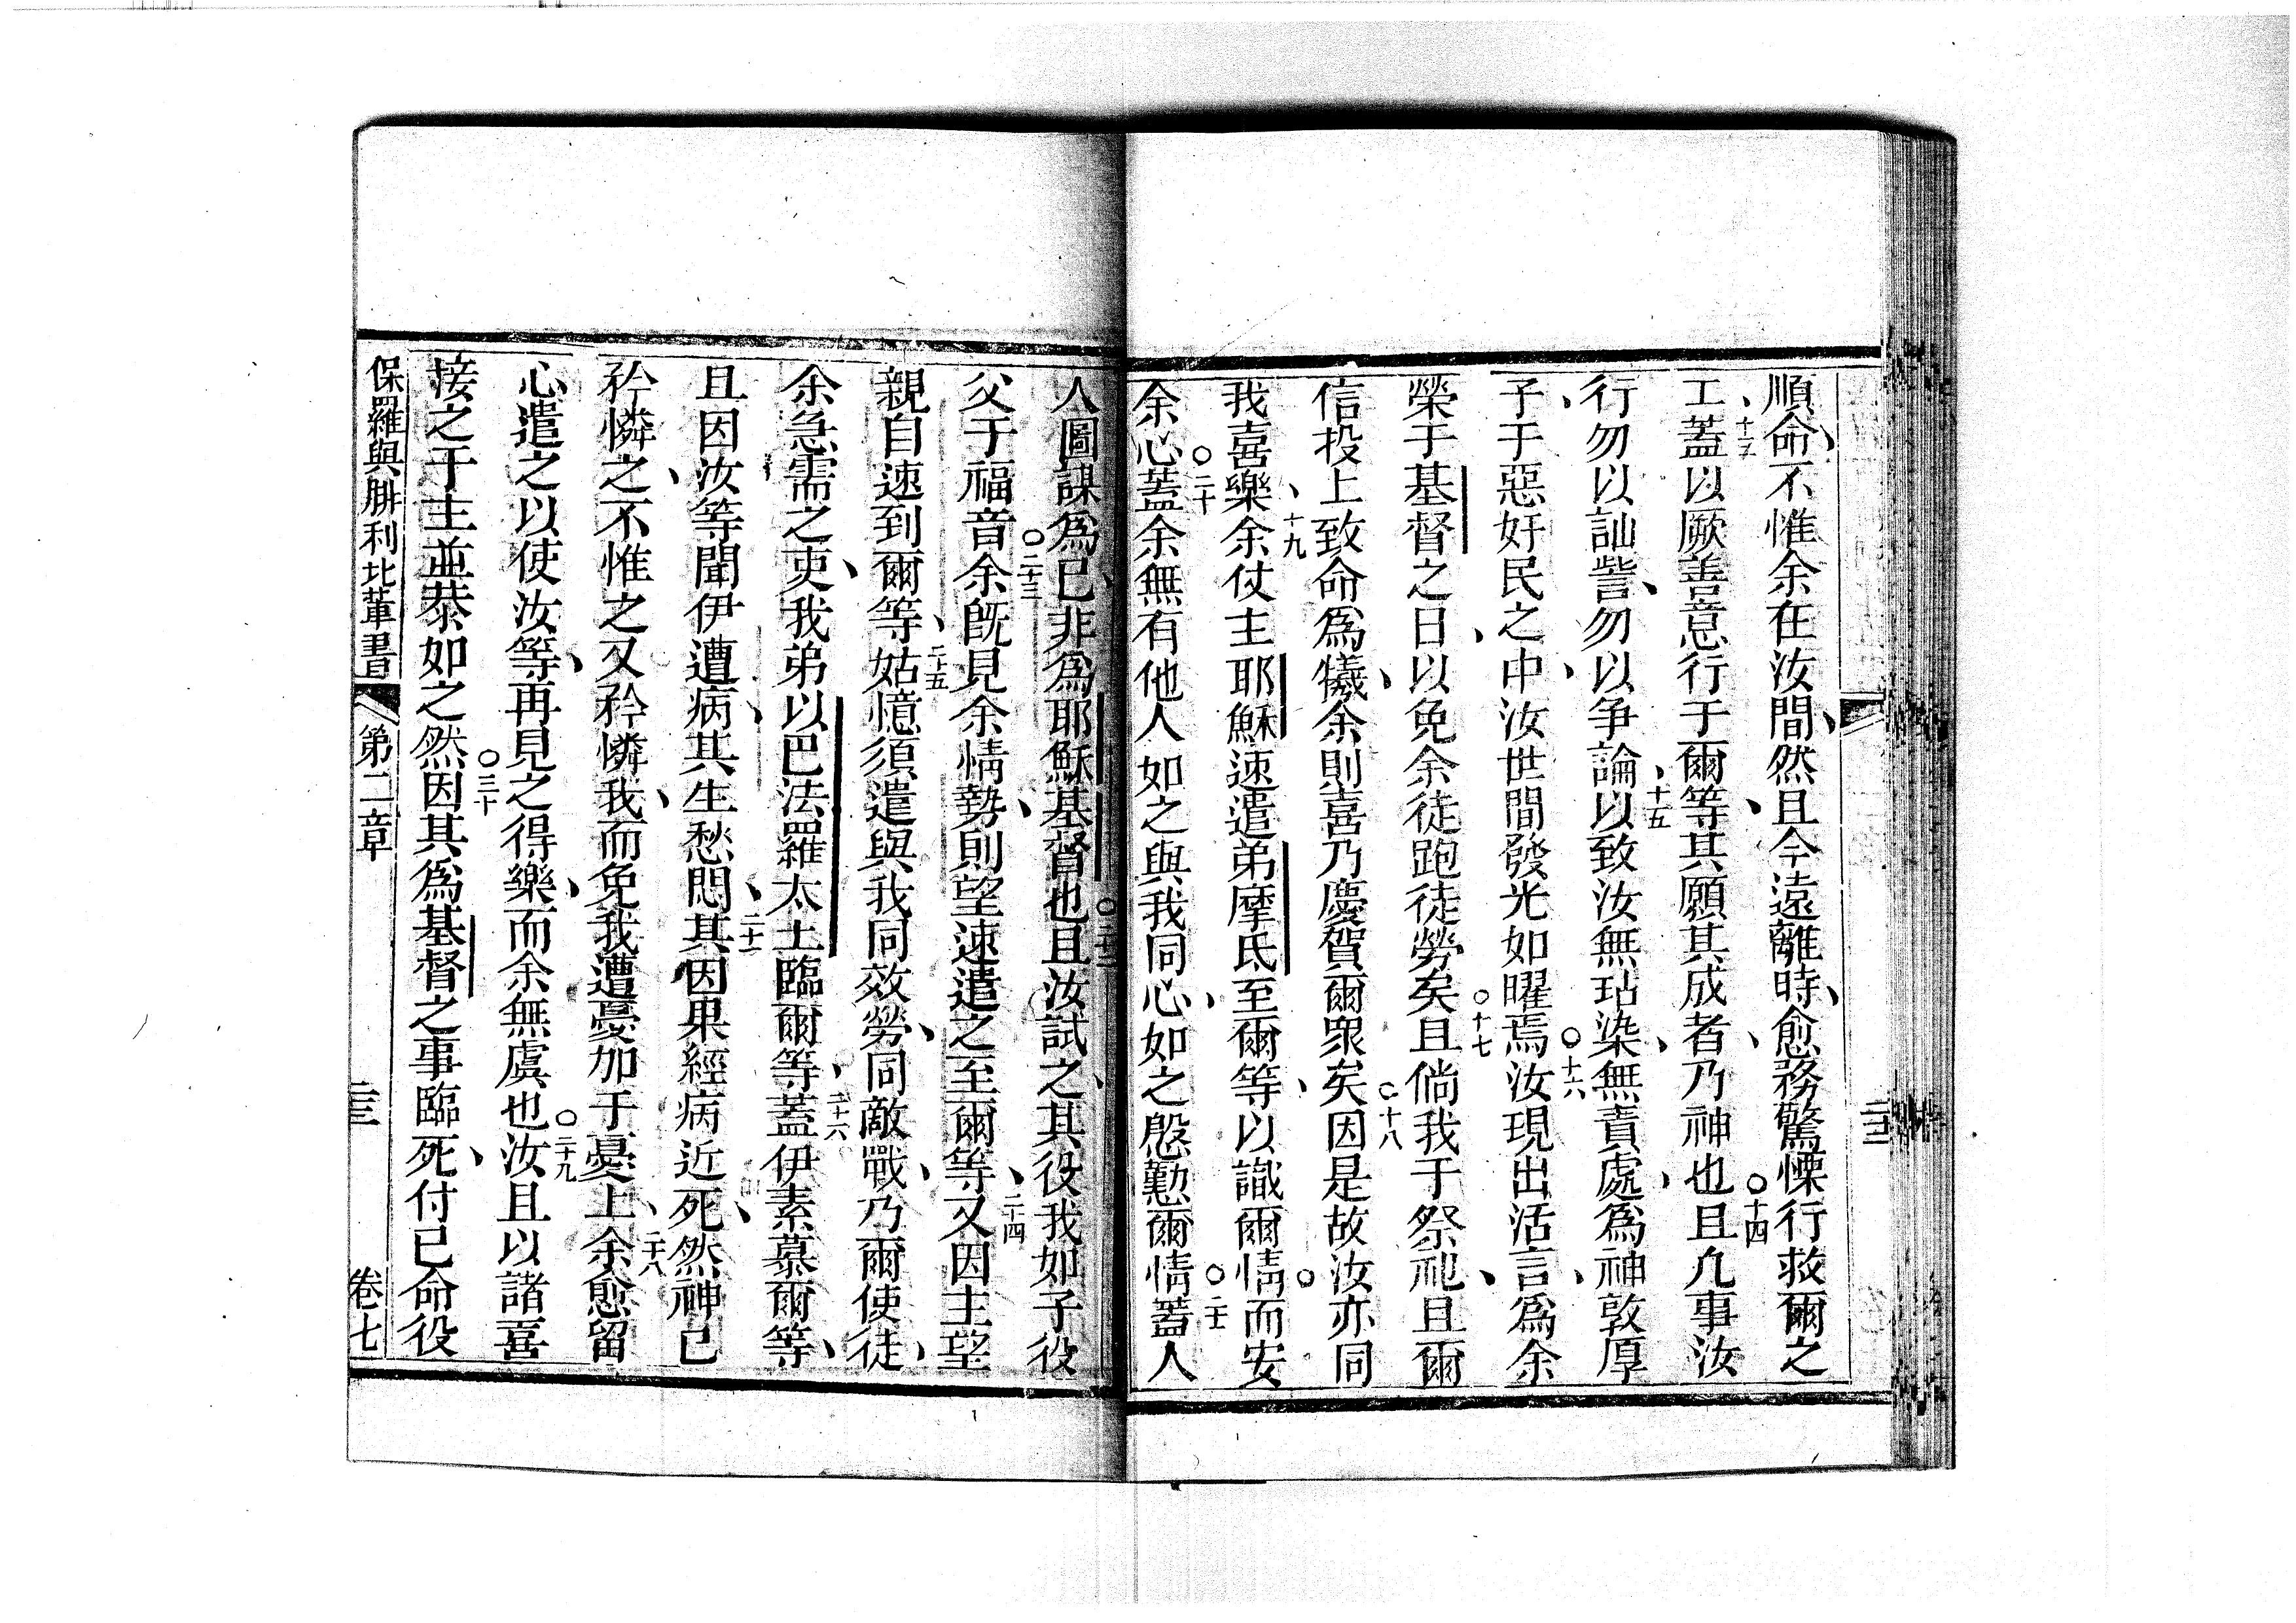 順命、不惟余在汝間、然且今遠離時、愈務驚慄行救爾之
工、十三蓋以厥善意行于爾等、其願其成者、乃神也○十四且凢事汝
行勿以訕訾、勿以争論、十五以致汝無玷染、無責處、爲神敦厚
子、于惡奸民之中、汝世間發光如曜焉○十六汝現出活言、爲余
榮于基督之日、以免余徒跑徒勞矣○十七且倘我于祭祀、且爾
信投上致命爲犧、余則喜乃慶賀爾衆矣○十八因是故汝亦同
我喜樂、十九余仗主耶穌速遣弟摩氐至爾等、以識爾情○而安
余心○二十蓋余無有他人如之與我同心、如之慇懃爾情○二十一蓋人
人圖謀爲己、非爲耶穌基督也○二十二且汝試之、其役我如子役
父于福音○二十三余旣見余情勢、則望速遣之至爾等、二十四又因主望
親自速到爾等、二十五姑憶須遣與我同效勞、同敵戰、乃爾使徒、
余急需之吏、我弟以巴法羅太士臨爾等、二十六蓋伊素慕爾等、
且因汝等聞伊遭病、其生愁悶、二十七其因果經病近死、然神已
矜憐之、不惟之又矜憐我、而免我遭憂加于憂上、二十八余愈留
心遣之、以使汝等、再見之得樂、而余無虞也○二十九汝且以諸喜
接之于主並恭如之然○三十因其爲基督之事臨死、付己命役
保羅與腓利比輩書 第二章 三 卷七